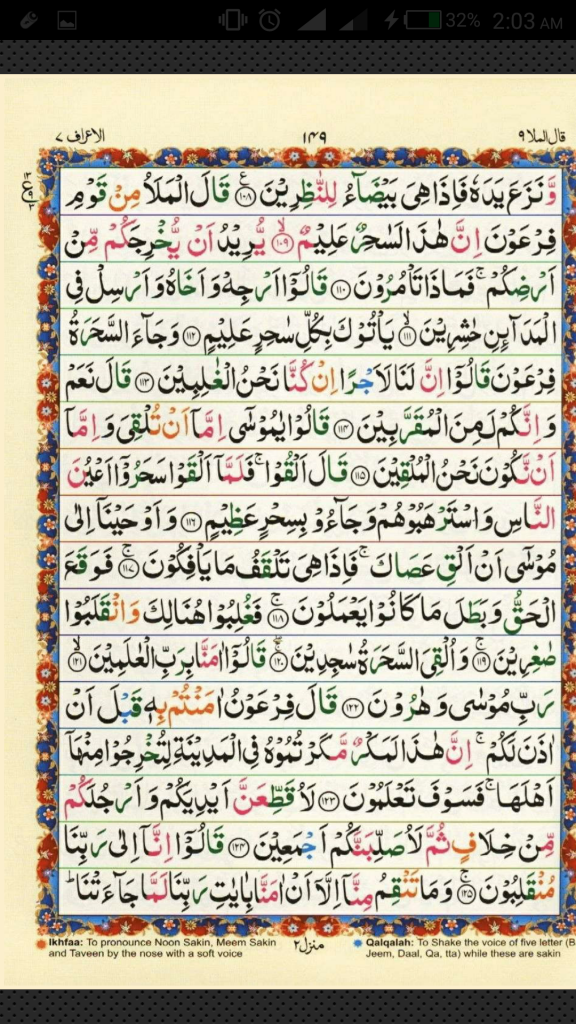 32% 2:03 AM
الاعراف ٧
١٤٩
قال الملا ٩
وَّنَزَعَ يَدَهٗ فَاِذَا هِىَ بَيْضَآءُ لِلنّٰظِرِيْنَ ۝١٠٨ قَالَ الْمَلَاُ مِنْ قَوْمِ
فِرْعَوْنَ اِنَّ هٰذَا لَسٰحِرٌ عَلِيْمٌ ۝١٠٩ يُّرِيْدُ اَنْ يُّخْرِجَكُمْ مِّنْ
اَرْضِكُمْ ۚ فَمَاذَا تَاْمُرُوْنَ ۝١١٠ قَالُوْۤا اَرْجِهْ وَاَخَاهُ وَاَرْسِلْ فِى
الْمَدَآئِنِ حٰشِرِيْنَ ۝١١١ يَاْتُوْكَ بِكُلِّ سٰحِرٍ عَلِيْمٍ ۝١١٢ وَجَآءَ السَّحَرَةُ
فِرْعَوْنَ قَالُوْۤا اِنَّ لَنَا لَاَجْرًا اِنْ كُنَّا نَحْنُ الْغٰلِبِيْنَ ۝١١٣ قَالَ نَعَمْ
وَاِنَّكُمْ لَمِنَ الْمُقَرَّبِيْنَ ۝١١٤ قَالُوْا يٰمُوْسٰٓى اِمَّاۤ اَنْ تُلْقِىَ وَاِمَّاۤ
اَنْ نَّكُوْنَ نَحْنُ الْمُلْقِيْنَ ۝١١٥ قَالَ اَلْقُوْا ۚ فَلَمَّاۤ اَلْقَوْا سَحَرُوْۤا اَعْيُنَ
النَّاسِ وَاسْتَرْهَبُوْهُمْ وَجَآءُوْ بِسِحْرٍ عَظِيْمٍ ۝١١٦ وَاَوْحَيْنَاۤ اِلٰى
مُوْسٰٓى اَنْ اَلْقِ عَصَاكَ ۚ فَاِذَا هِىَ تَلْقَفُ مَا يَاْفِكُوْنَ ۝١١٧ فَوَقَعَ
الْحَقُّ وَبَطَلَ مَا كَانُوْا يَعْمَلُوْنَ ۝١١٨ فَغُلِبُوْا هُنَالِكَ وَانْقَلَبُوْا
صٰغِرِيْنَ ۝١١٩ وَاُلْقِىَ السَّحَرَةُ سٰجِدِيْنَ ۝١٢٠ قَالُوْۤا اٰمَنَّا بِرَبِّ الْعٰلَمِيْنَ ۝١٢١
رَبِّ مُوْسٰى وَهٰرُوْنَ ۝١٢٢ قَالَ فِرْعَوْنُ اٰمَنْتُمْ بِهٖ قَبْلَ اَنْ
اٰذَنَ لَكُمْ ۚ اِنَّ هٰذَا لَمَكْرٌ مَّكَرْتُمُوْهُ فِى الْمَدِيْنَةِ لِتُخْرِجُوْا مِنْهَاۤ
اَهْلَهَا ۚ فَسَوْفَ تَعْلَمُوْنَ ۝١٢٣ لَاُقَطِّعَنَّ اَيْدِيَكُمْ وَاَرْجُلَكُمْ
مِّنْ خِلَافٍ ثُمَّ لَاُصَلِّبَنَّكُمْ اَجْمَعِيْنَ ۝١٢٤ قَالُوْۤا اِنَّاۤ اِلٰى رَبِّنَا
مُنْقَلِبُوْنَ ۝١٢٥ وَمَا تَنْقِمُ مِنَّاۤ اِلَّاۤ اَنْ اٰمَنَّا بِاٰيٰتِ رَبِّنَا لَمَّا جَآءَتْنَا ؕ
Ikhfaa: To pronounce Noon Sakin, Meem Sakin
and Taveen by the nose with a soft voice
منزل ٢
Qalqalah: To Shake the voice of five letter (B
Jeem, Daal, Qa, tta) while these are sakin